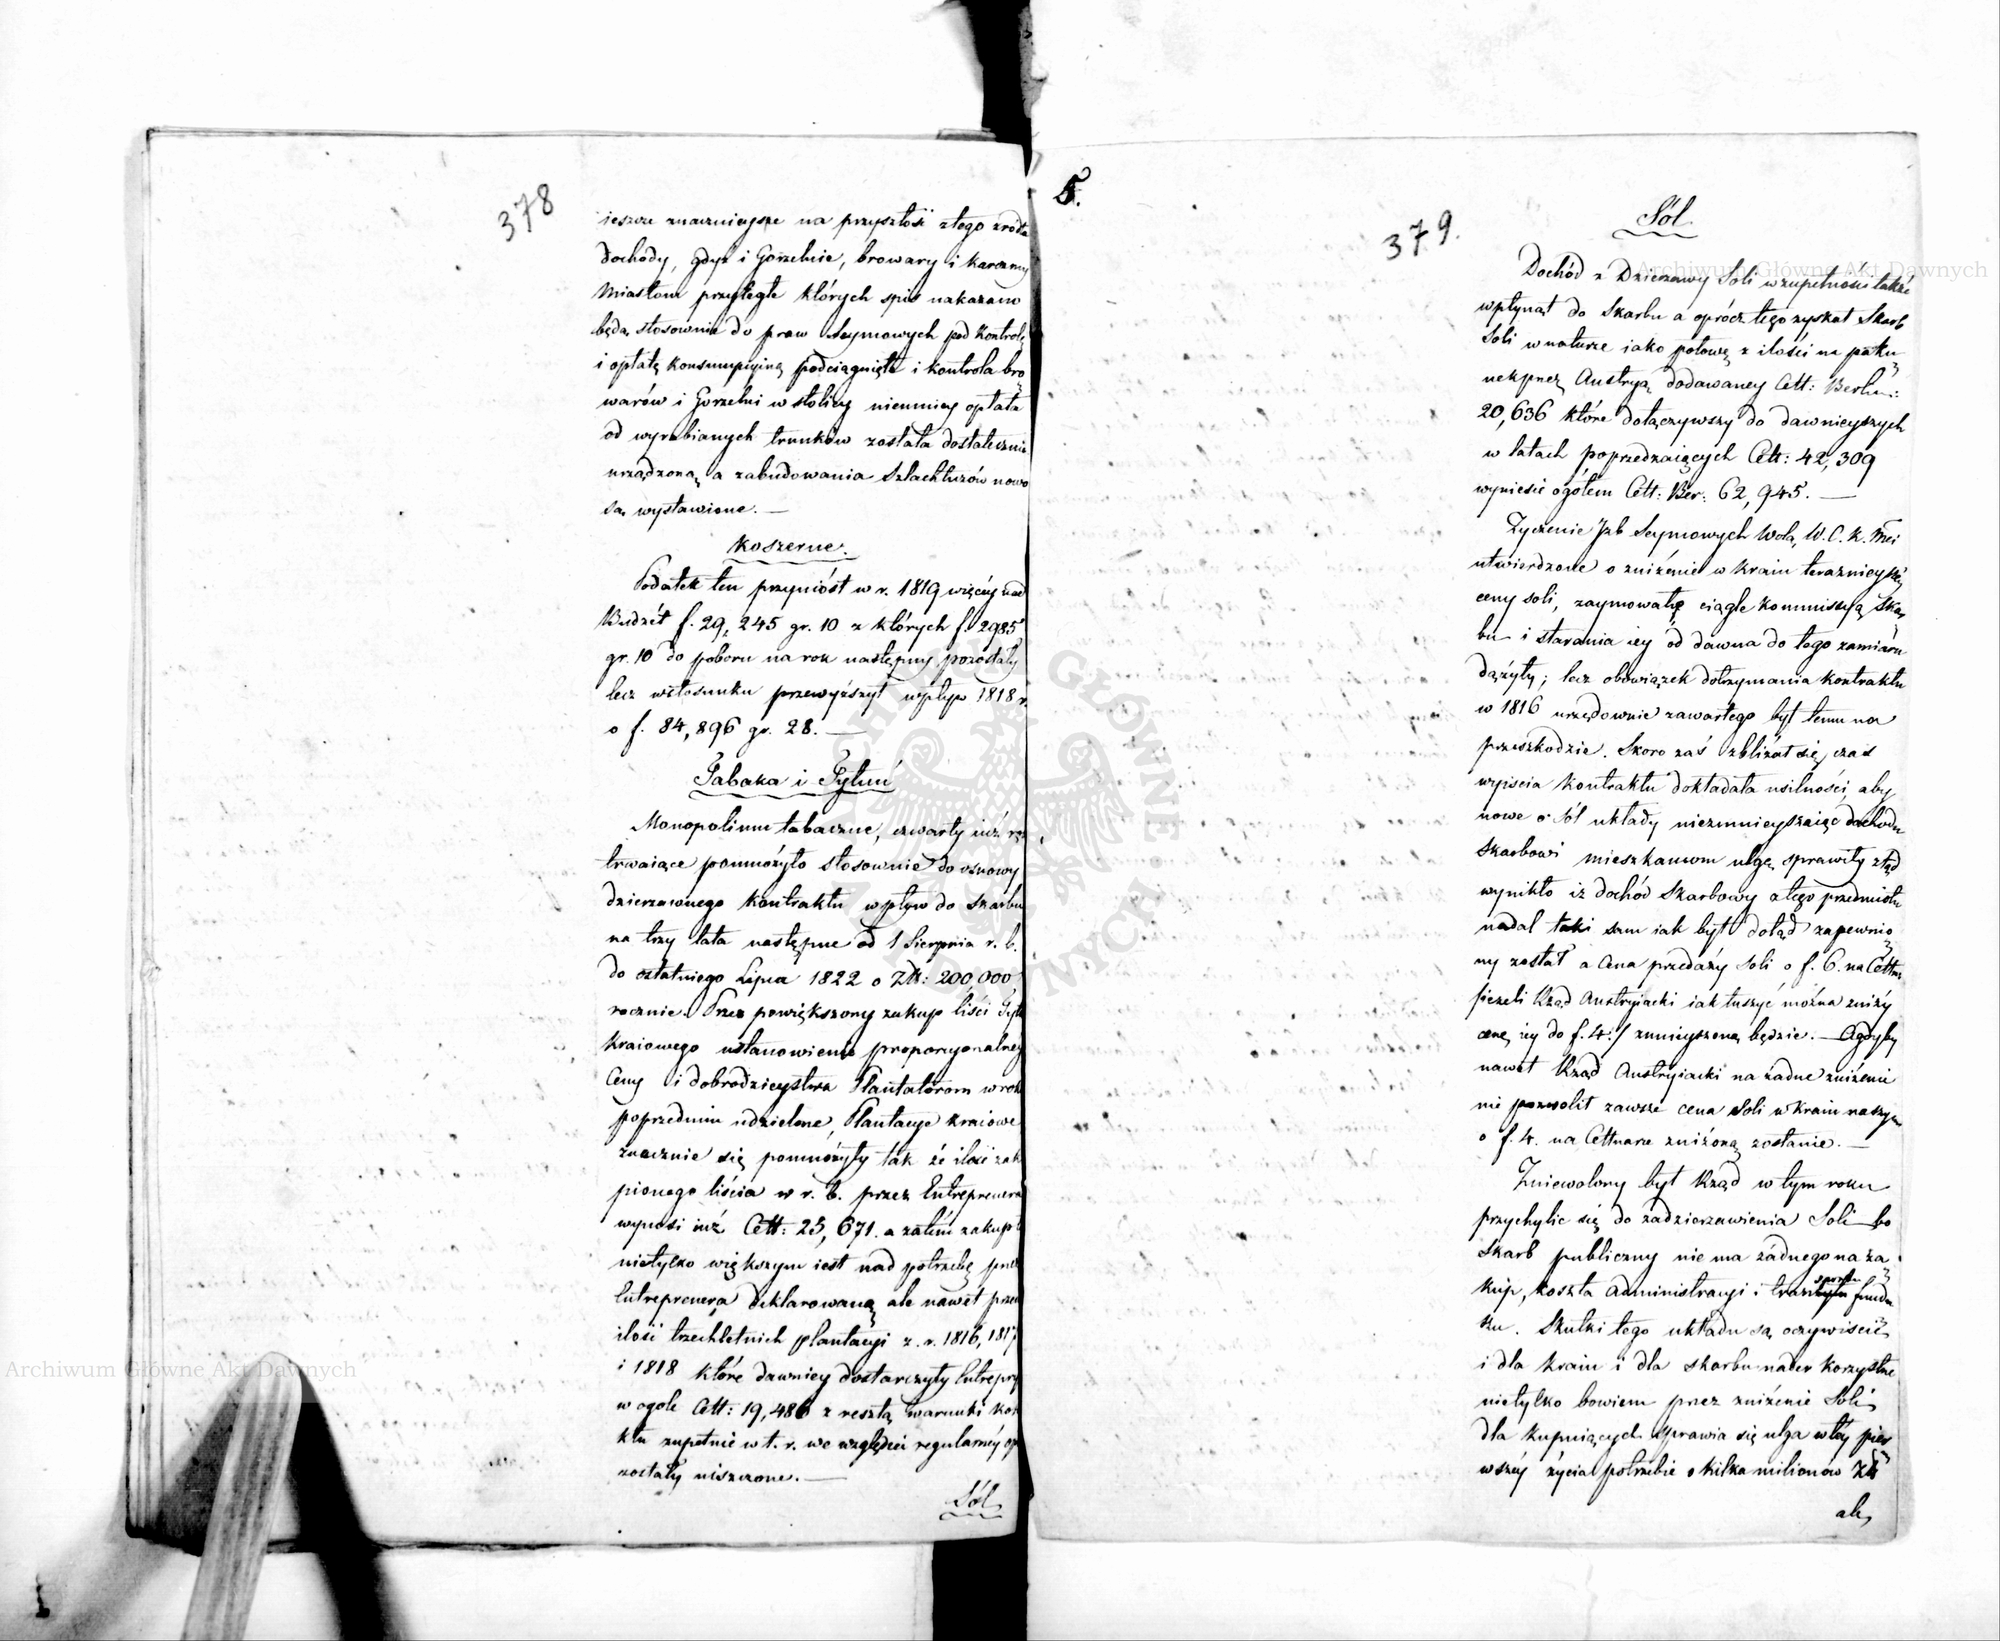 378
ieszcze znacznieysze na przyszłość z tego źródła
dochody, gdyż i Gorzelnie, browary i karczmy
Miastom przyległe których spis nakazano
będą stosownie do praw Seymowych pod kontrolę
i opłatę konsumpcyiną podciągnięte i kontrola bro
warów i Gorzelni w stolicy niemniey opłata
od wyrabianych trunków została dostatecznie
urządzoną, a zabudowania Szlachtuzów nowo
są wystawione. —
Koszerne.
Podatek ten przyniósł w r. 1819 więcéy nad
Budżet f. 29,245 gr. 10 z których f. 2985
gr. 10 do poboru na rok następny pozostały
lecz w stosunku przewyższył wpływ 1818 r.
o f. 84,896 gr. 28. —
Tabaka i Tytuń
Monopolium tabaczne, czwarty iuż rok
trwaiące pomnożyło stosownie do osnowy
dzierzawnego kontraktu wpływ do Skarbu
na trzy lata następne od 1 Sierpnia r. b.
do ostatniego Lipca 1822 o Złt: 200,000
rocznie. Przez powiększony zakup liści Tyt
kraiowego ustanowienie proporcyonalney
Ceny i dobrodzieystwa Plantatorom w roku
poprzednim udzielone, Plantacye kraiowe
znacznie się pomnożyły tak że ilość zak
pionego liścia w r. b. przez Entreprenera
wynosi iuż Cett: 25,671. a zatém zakup
nietylko większym iest nad potrzebę przez
Entreprenera deklarowaną ale nawet przen
ilość trzechletnich plantacyi z r. 1816, 1817
i 1818 które dawniey dostarczyły Entrepry
w ogole Cett: 19,486 z resztą warunki kon
ktu zupełnie w t. r. we względzie regularnéy op
zostały uiszczone. —
Sól
5.
379.
Sól.
Dochód z Dzierzawy Soli w zupełności także
wpłynął do Skarbu a oprócz tego zyskał Skarb
Soli w naturze iako połowę z ilości na paku
nek przez Austryą dodawaney Cett: Berlin:
20,636 które dołączywszy do dawnieyszych
w latach poprzedzaiących Cett: 42,309
wyniesie ogółem Cett: Ber: 62,945. —
Życzenie Izb Seymowych Wolą W. C. K. Mci
utwierdzone o zniżenie w kraiu teraznieyszéy
ceny soli, zaymowały ciągle Kommissyą Skar
bu i starania iey od dawna do tego zamiaru
dążyły; lecz obowiązek dotrzymania kontraktu
w 1816 urzędownie zawartego był temu na
przeszkodzie. Skoro zaś zbliżał się czas
wyiścia kontraktu dokładała usilności, aby
nowe o Sól układy niezmnieyszaiąc dochodu
Skarbowi mieszkańcom ulgę sprawiły ztąd
wynikło iż dochód Skarbowy z tego przedmiotu
nadal taki sam iak był dotąd zapewnio
ny został a Cena przedaży Soli o f. 6. na Cettnar
/ieżeli Rząd Austryiacki iak tuszyć można zniży
cenę iey do f. 4:/ zmnieyszoną będzie. — Agdyby
nawet Rząd Austryiacki na żadne zniżenie
nie pozwolił zawsze cena Soli w Kraiu naszym
o f. 4. na Cettnarze zniżoną zostanie. —
Zniewolony był Rząd w tym roku
przychylić się do zadzierzawienia Soli bo
Skarb publiczny nie ma żadnego na za
kup, koszta Administracyi i transportu fundu
szu. Skutki tego układu są oczywiście
i dla Kraiu i dla skarbu nader korzystne
nietylko bowiem przez zniżenie Soli
dla kupuiących sprawia się ulga w tey pier
wszéy życia potrzebie o kilka milionów Zł
ale,